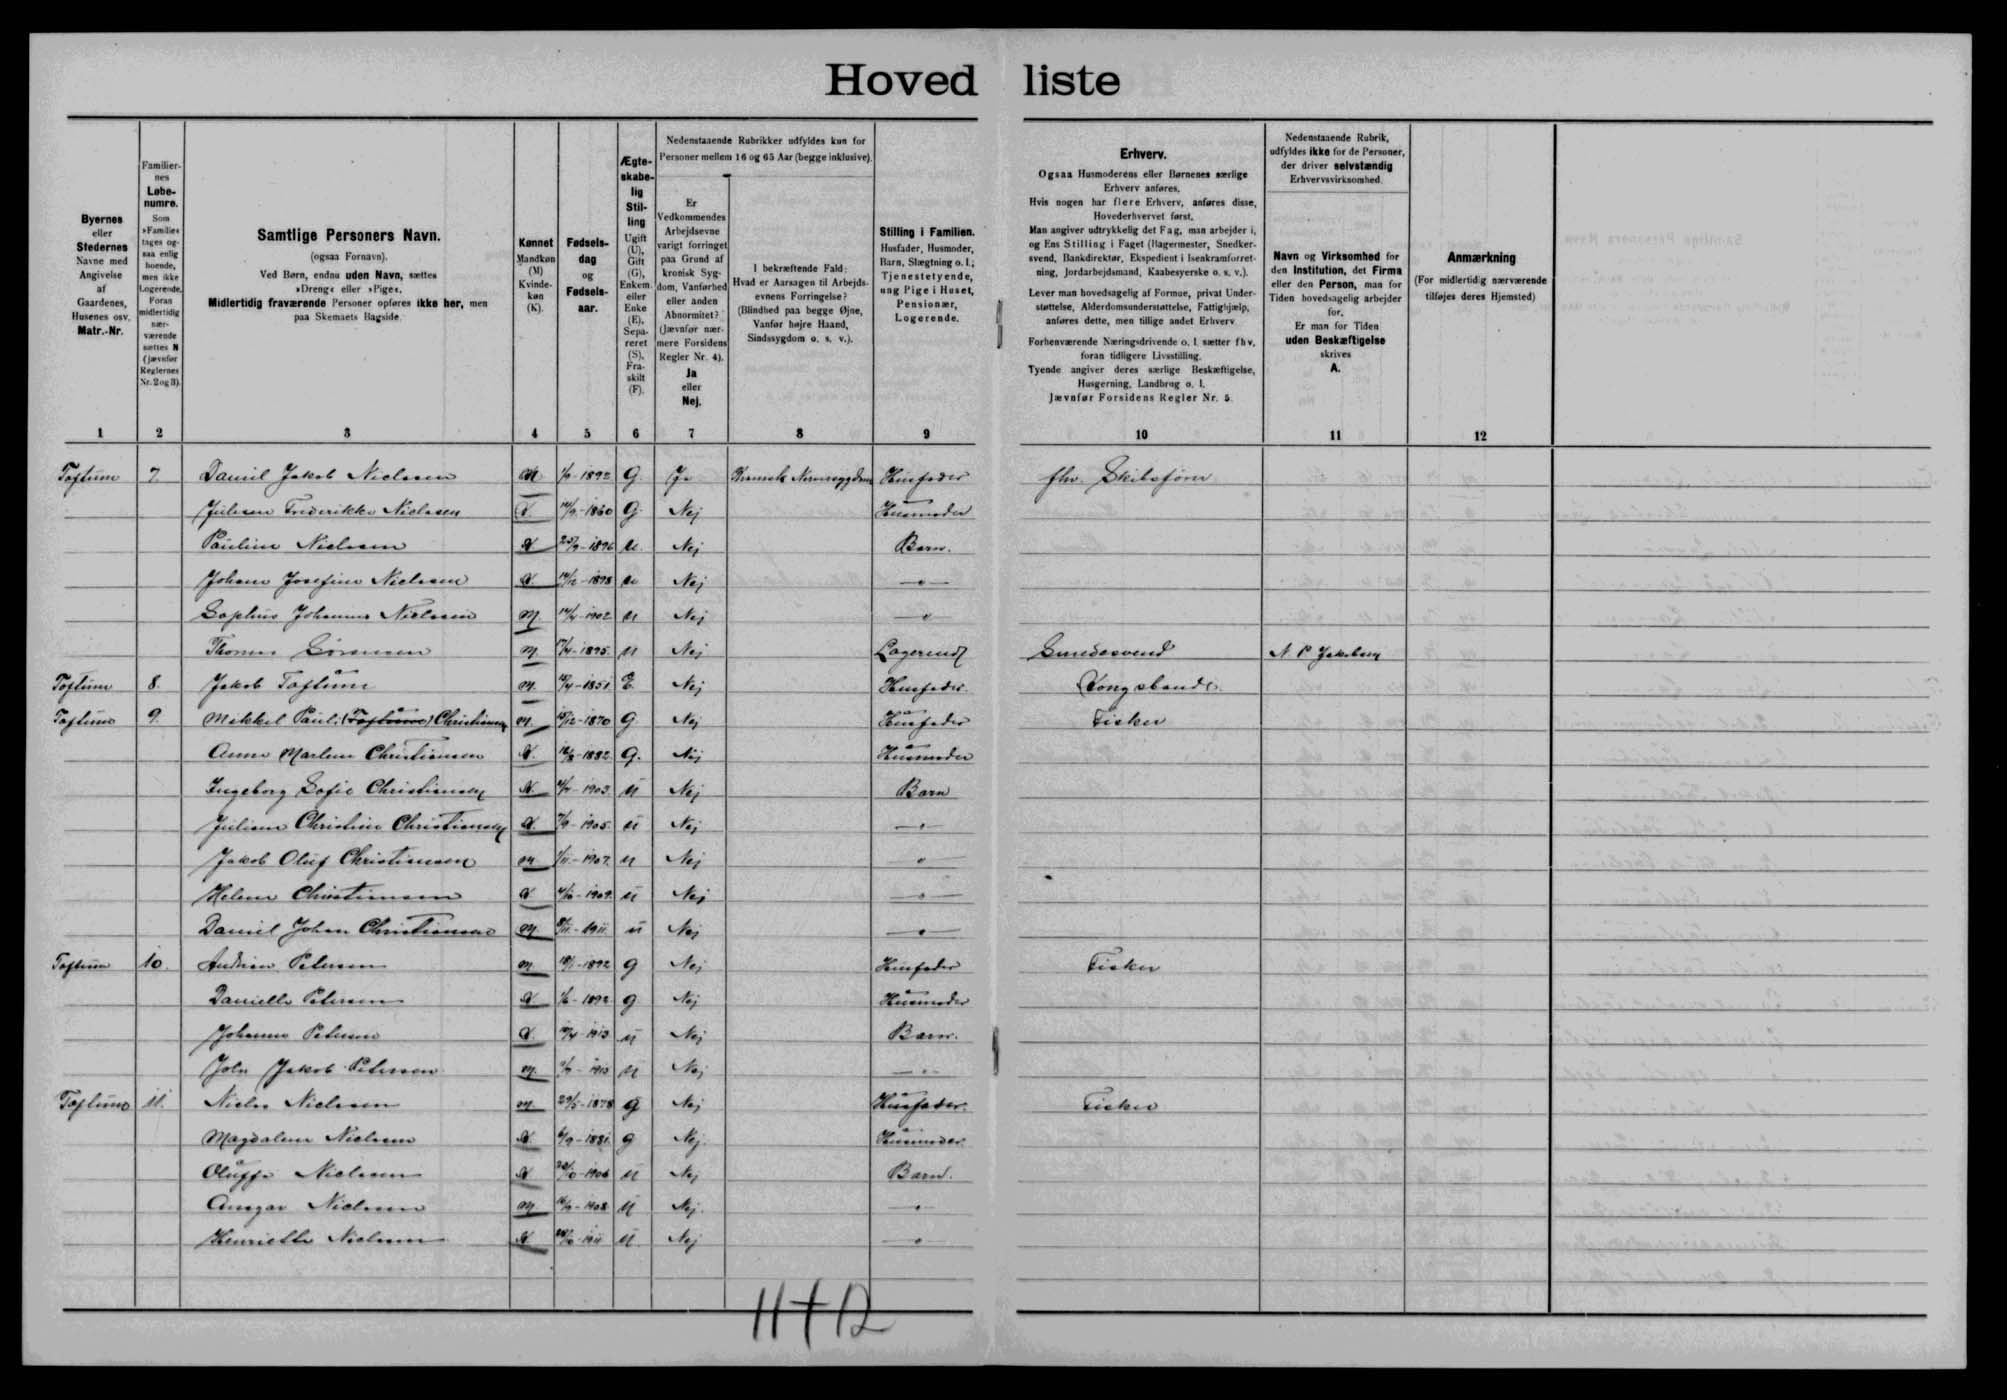 Hovedliste
Byernes
eller
Stedernes
Navne med
Angivelse
af
Gaardenes,
Husenes osv.
Matr.-Nr.
Familier-
nes
Løbe-
numre.
Som
»Familie«
tages og-
saa enlig
boende,
men ikke
Logerende.
Foran
midlertidig
nær-
værende
sættes N
(jævnfør
Reglernes
Nr. 2 og 3).
Samtlige Personers Navn.
(ogsaa Fornavn).
Ved Børn, endnu uden Navn, sættes
»Dreng« eller »Pige«.
Midlertidig fraværende Personer opføres ikke her, men
paa Skemaets Bagside.
Kønnet
Mandkøn
(M)
Kvinde-
køn
(K).
Fødsels-
dag
og
Fødsels-
aar.
Ægte-
skabe-
lig
Stil-
ling
Ugift
(U),
Gift
(G),
Enkem.
eller
Enke
(E),
Sepa-
reret
(S),
Fra-
skilt
(F).
Nedenstaaende Rubrikker udfyldes kun for
Personer mellem 16 og 65 Aar (begge inklusive).
Er
Vedkommendes
Arbejdsevne
varigt forringet
paa Grund af
kronisk Syg-
dom, Vanførhed
eller anden
Abnormitet?
(Jævnfør nær-
mere Forsidens
Regler Nr. 4).
Ja
eller
Nej.
I bekræftende Fald:
Hvad er Aarsagen til Arbejds-
evnens Forringelse?
(Blindhed paa begge Øjne,
Vanfør højre Haand,
Sindssygdom o. s. v.).
Stilling i Familien.
Husfader, Husmoder,
Barn, Slægtning o. l.;
Tjenestetyende,
ung Pige i Huset,
Pensionær,
Logerende.
Erhverv.
Ogsaa Husmoderens eller Børnenes særlige
Erhverv anføres.
Hvis nogen har flere Erhverv, anføres disse,
Hovederhvervet først.
Man angiver udtrykkelig det Fag, man arbejder i,
og Ens Stilling i Faget (Bagermester, Snedker-
svend, Bankdirektør, Ekspedient i Isenkramforret-
ning, Jordarbejdsmand, Kaabesyerske o. s. v.).
Lever man hovedsagelig af Formue, privat Under-
støttelse, Alderdomsunderstøttelse, Fattighjælp,
anføres dette, men tillige andet Erhverv.
Forhenværende Næringsdrivende o. l. sætter fhv.
foran tidligere Livsstilling.
Tyende angiver deres særlige Beskæftigelse,
Husgerning, Landbrug o. l.
Jævnfør Forsidens Regler Nr. 5.
Nedenstaaende Rubrik,
udfyldes ikke for de Personer,
der driver selvstændig
Erhvervsvirksomhed.
Navn og Virksomhed for
den Institution, det Firma
eller den Person, man for
Tiden hovedsagelig arbejder
for.
Er man for Tiden
uden Beskæftigelse
skrives
A.
Anmærkning
(For midlertidig nærværende
tilføjes deres Hjemsted)
1 2 3 4 5 6 7 8 9 10 11 12
Toftum 7 Daniel Jakob Nielsen M 1892 G. Ja Husfader fhv. Skibsfører
Frederikke Nielsen K 1860 G Nej Husmoder
Pauline Nielsen K 25/9-1896 U. Nej Barn.
Johane Josefine Nielsen K 1898 U Nej —„—
Sophus Johannes Nielsen M. 1902 U Nej —„—
Thomas Sørensen M. 1895 U Nej Logerende Svend N. P. Jakobsen
Toftum 8. Jakob Toftum M. 1851 E. Nej Husfader. Kongsbonde
Toftum 9. Mikkel Pauli (Toftum) Christiansen M. 1870 G Nej Husfader Fisker
Anna Marlene Christiansen K. 1882 G. Nej Husmoder
Ingeborg Sofie Christiansen K. 1903. U Nej Barn
Juliane Christine Christiansen K. 1905. U Nej —„—
Jakob Oluf Christiansen M 1907. U Nej „
Helene Christiansen K 1909. U Nej —„—
Daniel Johan Christiansen M. 8/11-1911. U Nej —„—
Toftum 10. Andreas Petersen M 1892 G Nej Husfader Fisker
Danielle Petersen K 1892 G Nej Husmoder
Johanne Petersen K. 1913 U Nej Barn.
John Jakob Petersen M. U Nej —„—
Toftum 11. Niels Nielsen M. 29/5-1878 G Nej Husfader. Fisker
Magdalene Nielsen K 1881. G Nej. Husmoder.
Oluffa Nielsen K 1906 U Nej Barn.
Ansgar Nielsen M. 1908 U Nej. —„—
Henriette Nielsen K. 1911 U. Nej —„—
11+12